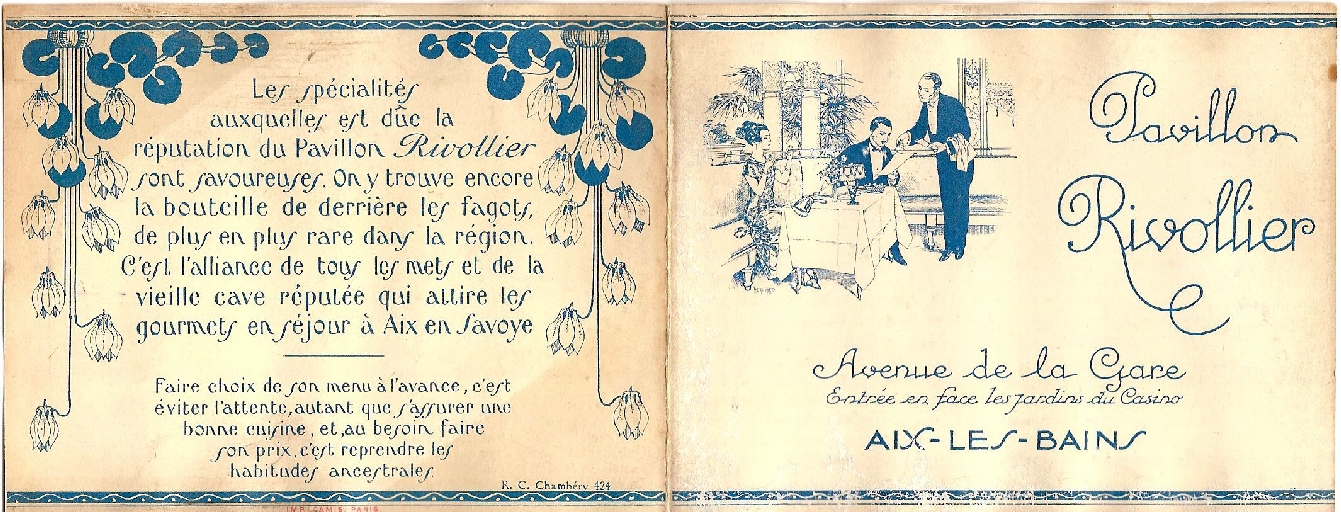 Les spécialités
auxquelles est dûe la
réputation du Pavillon Rivollier
sont savoureuses. On y trouve encore
la bouteille de derrière les fagots,
de plus en plus rare dans la région.
C'est l'alliance de tous les mets et de la
vieille cave réputée qui attire les
gourmets en séjour à Aix en Savoye
Faire choix de son menu à l'avance, c'est
éviter l'attente, autant que s'assurer une
bonne cuisine, et, au besoin faire
son prix, c'est reprendre les
habitudes ancestrales.
R. C. Chambéry 424
Pavillon
Rivollier
Avenue de la Gare
Entrée en face les Jardins du Casino
AIX-LES-BAINS